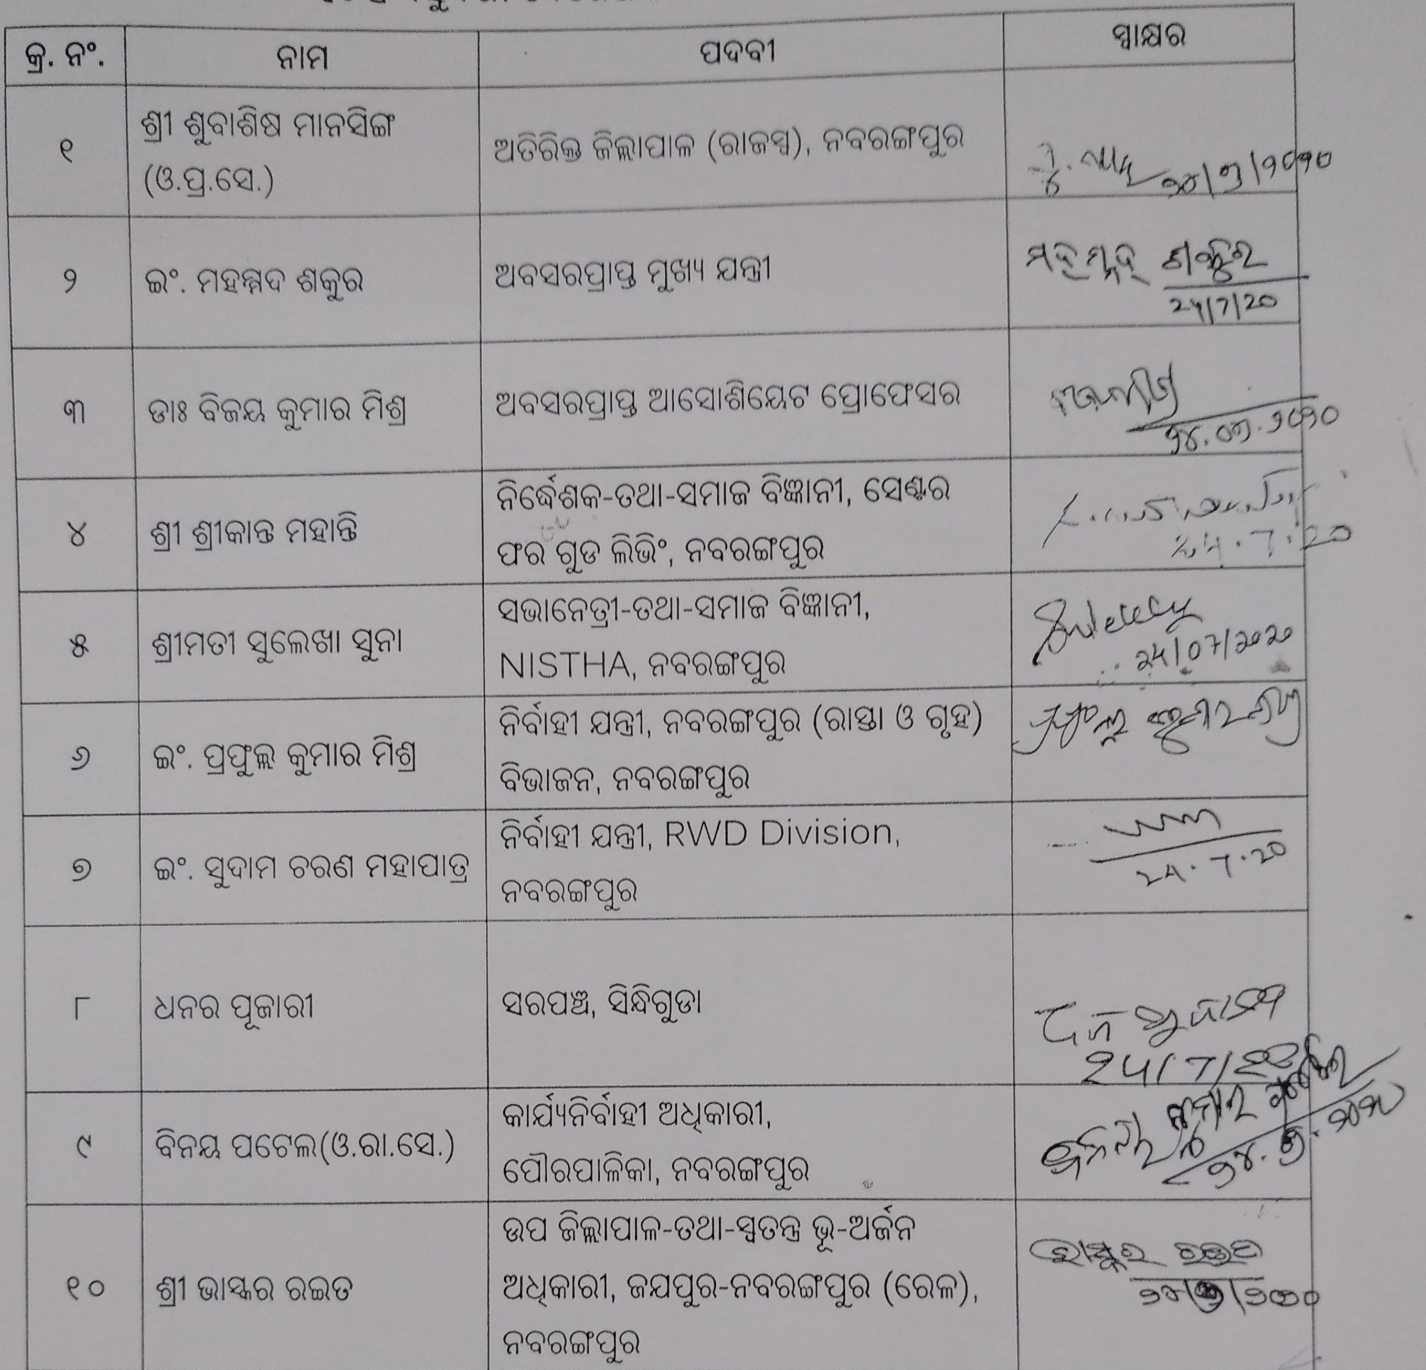 କ୍ର. ନଂ. ନାମ ପଦବୀ ସ୍ୱାକ୍ଷର
୧ ଶ୍ରୀ ଶୁବାଶିଷ ମାନସିଙ୍ଗ
(ଓ.ପ୍ର.ସେ.)
ଅତିରିକ୍ତ ଜିଲ୍ଲାପାଳ (ରାଜସ୍ୱ), ନବରଙ୍ଗପୁର
୨ ଇଂ. ମହମ୍ମଦ ଶକୁର ଅବସରପ୍ରାପ୍ତ ମୁଖ୍ୟ ଯନ୍ତ୍ରୀ
24/7/20
୩ ଡାଃ ବିଜୟ କୁମାର ମିଶ୍ର ଅବସରପ୍ରାପ୍ତ ଆସୋଶିୟେଟ ପ୍ରୋଫେସର
୨୪.୦୭.୨୦୨୦
୪ ଶ୍ରୀ ଶ୍ରୀକାନ୍ତ ମହାନ୍ତି
ନିର୍ଦ୍ଧେଶକ-ତଥା-ସମାଜ ବିଜ୍ଞାନୀ, ସେଣ୍ଟର
ଫର ଗୁଡ ଲିଭିଂ, ନବରଙ୍ଗପୁର
24.7.20
୫ ଶ୍ରୀମତୀ ସୁଲେଖା ସୁନା
ସଭାନେତ୍ରୀ-ତଥା-ସମାଜ ବିଜ୍ଞାନୀ,
NISTHA, ନବରଙ୍ଗପୁର
24/07/2020
୬ ଇଂ. ପ୍ରଫୁଲ୍ଲ କୁମାର ମିଶ୍ର
ନିର୍ବାହୀ ଯନ୍ତ୍ରୀ, ନବରଙ୍ଗପୁର (ରାସ୍ତା ଓ ଗୃହ)
ବିଭାଜନ, ନବରଙ୍ଗପୁର
୭ ଇଂ. ସୁଦାମ ଚରଣ ମହାପାତ୍ର
ନିର୍ବାହୀ ଯନ୍ତ୍ରୀ, RWD Division,
ନବରଙ୍ଗପୁର
24.7.20
୮ ଧନର ପୂଜାରୀ ସରପଞ୍ଚ, ସିନ୍ଧିଗୁଡା
24/7/20
୯ ବିନୟ ପଟେଲ(ଓ.ରା.ସେ.)
କାର୍ଯ୍ୟନିର୍ବାହୀ ଅଧିକାରୀ,
ପୌରପାଳିକା, ନବରଙ୍ଗପୁର
୧୦ ଶ୍ରୀ ଭାସ୍କର ରଇତ
ଉପ ଜିଲ୍ଲାପାଳ-ତଥା-ସ୍ୱତନ୍ତ୍ର ଭୂ-ଅର୍ଜନ
ଅଧିକାରୀ, ଜଯପୁର-ନବରଙ୍ଗପୁର (ରେଳ),
ନବରଙ୍ଗପୁର
ଭାସ୍କର ରଇତ